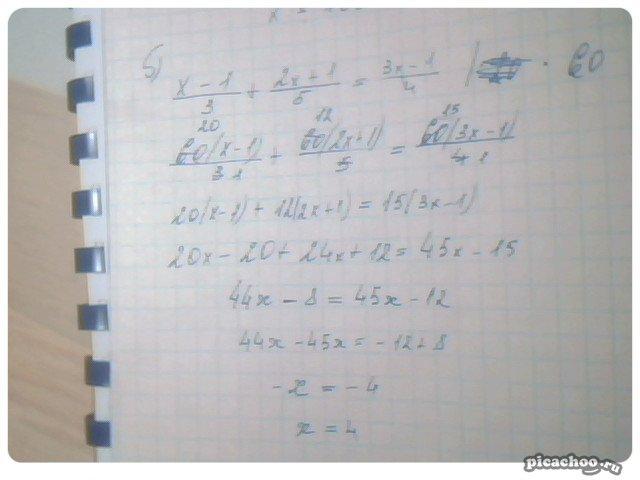 x = 100
б) x – 1/3 + 2x + 1/5 = 3x – 1/4 | · 60
20 12 15
60(x – 1)/3 1 + 60(2x + 1)/5 = 60(3x – 1)/4 1
20(x – 1) + 12(2x + 1) = 15(3x – 1)
20x – 20 + 24x + 12 = 45x – 15
44x – 8 = 45x – 12
44x – 45x = – 12 + 8
– x = – 4
x = 4
picachoo.ru